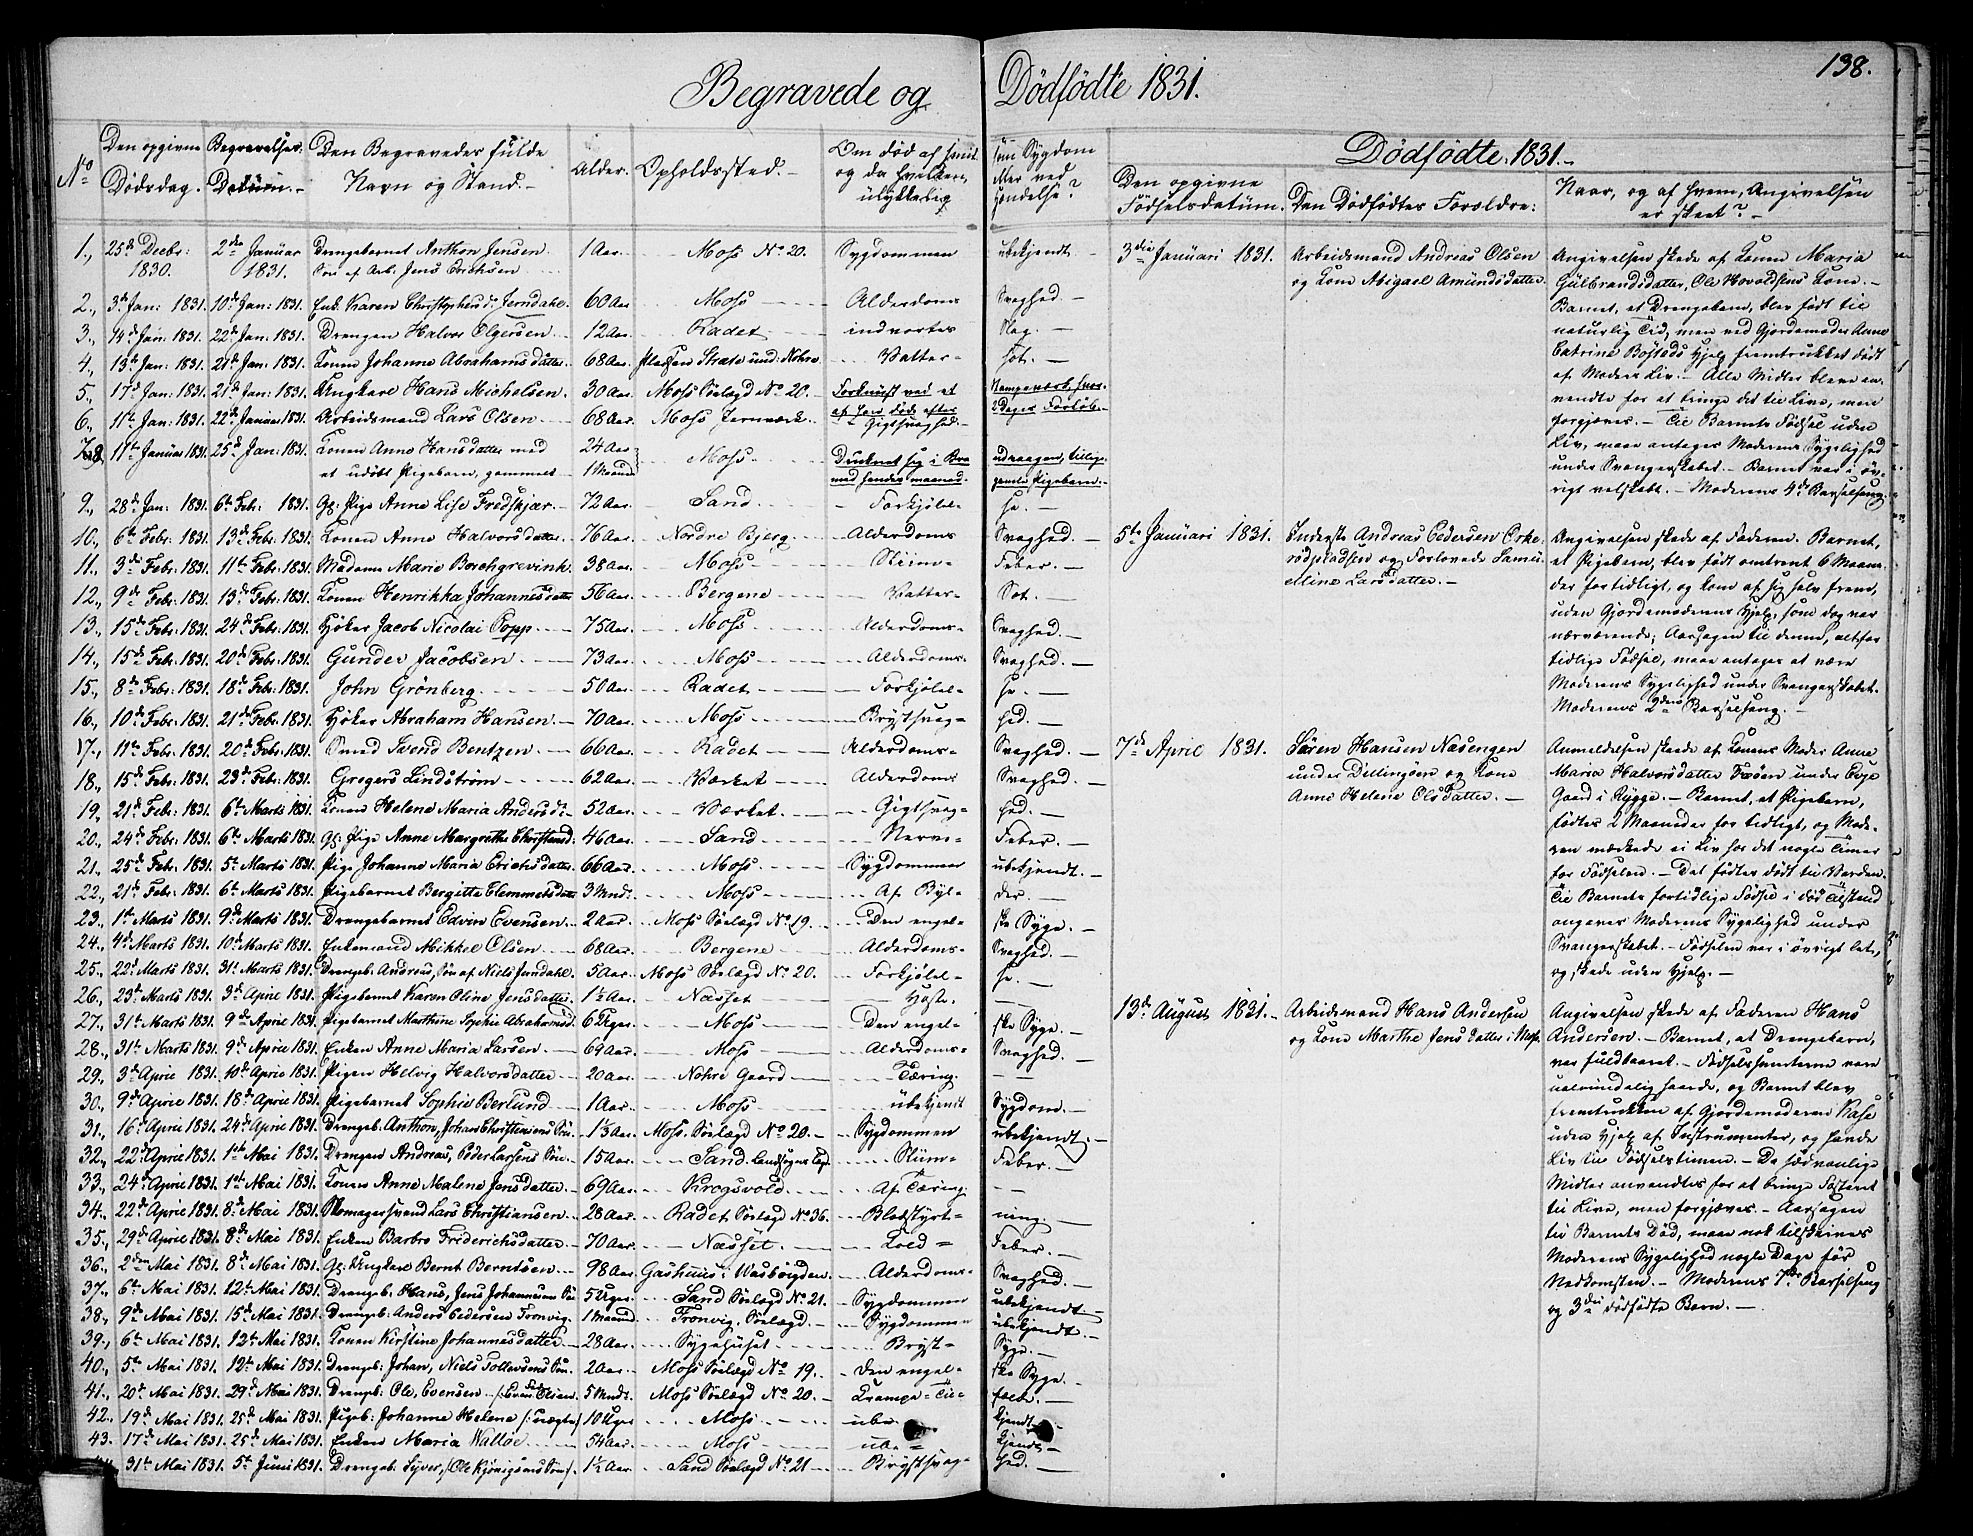 Begravede og Dödfödte 1831.
138.
No
Den opgivne Dödsdag.
Begravelses Datum.
Den Begravedes fulde Navn og Stand.
Alder.
Opholdssted.
Om död af Smit- som Sygdom
og da hvilken, eller ved
ulykkelig Hændelse?
Dödfödte 1831.
Den opgivne Födselsdatum.
Den Dödfödtes Forældre:
Naar, og af hvem, Angivelsen er skeet?
1., 25de Decbr: 1830. 2den Januar 1831. Drengebarnet Anthon Jensen Sön af Arb. Jens Erichsen 1 Aar Moss No 20. Sygdommen ubekjendt.
2., 3die Jan: 1831. 10de Jan: 1831. Enk. Karen Jerndahl. 60 Aar Moss Alderdoms Svaghed.
3., 14de Jan: 1831. 22de Jan: 1831. Drengen Halvor Olgersen 12 Aar. Radet indvortes Slag.
4., 13de Jan: 1831. 21de Jan: 1831. Konen Johanne Abrahamsdatter 68 Aar Pladsen und: Nohre Vatter- sot.
5., 17de Jan: 1831. 21de Jan: 1831. Ungkarl Hans Michelsen. 30 Aar. Moss Sölægd No 20. Forknust ved et
6., 11te Jan: 1831. 22de Januar 1831. Arbeidsmand Lars Olsen 68 Aar. Moss Jernværk Gigtsvaghed.
7.,8., 11te Januar 1831. 25de Jan: 1831. Konen Anne Hansdatter med et udöbt Pigebarn, gammel 24 Aar 1 Maaned Moss. Druknet sig i
9., 28de Jan: 1831. 6te Feb: 1831. Gl: Pige Anne Lise Fredskjær. 72 Aar. Sand. Forkjölel- se.
10., 6te Febr: 1831. 13de Febr: 1831. Konen Anne Halvorsdatter. 76 Aar. Nordre Bjerg Alderdoms Svaghed.
11., 3die Febr: 1831. 11te Febr: 1831. Madame Marie Borchgrevink. 38 Aar. Moss. Sliim- Feber.
12., 9de Febr: 1831. 13de Febr: 1831. Konen Henrikka Johannesdatter 56 Aar. Bergene Vatter- Sot.
13., 15de Febr: 1831. 24de Febr: 1831. Höker Jacob Nicolai Popp. 75 Aar. Moss Alderdoms- Svaghed.
14., 15de Feb: 1831. 20de Febr: 1831. Gunder Jacobsen 73 Aar. Moss. Alderdoms- Svaghed.
15., 8de Feb: 1831. 18de Feb: 1831. John Grönberg. 50 Aar. Radet Forkjölel- se.
16., 10de Febr: 1831. 21de Febr: 1831. Höker Abraham Hansen 70 Aar. Moss. Brystsvag- hed.
17., 11te Febr: 1831. 20de Febr: 1831. Smed Svend Bentzen. 66 Aar. Radet Alderdoms- Svaghed.
18., 15de Febr: 1831. 23de Febr: 1831. Gregers Lindström 62 Aar. Værket Alderdoms Svaghed.
19., 21de Feb: 1831. 6te Marts 1831. Konen Helene Maria Andersdt. 52 Aar. Værket. Gigtsvag- hed.
20., 24de Febr: 1831. 6te Marts 1831. Gl: Pige Anne Margrethe 46 Aar. Sand Nerve- Feber.
21., 25de Feb: 1831. 5te Marts 1831. Pige Johanne Maria Erichsdatter 66 Aar. Moss. Sygdommen ubekjendt.
22., 21de Feb: 1831. 6te Marts 1831. Pigebarnet Bergitte Clemmetsdatter 3 Mndr. Moss Af Byl- der.
23., 1te Marts 1831. 9de Marts 1831. Drengebarnet Edvin Evensen. 2 Aar. Moss Sölægd No 19. Den engel- ske Syge.
24., 4de Marts 1831. 10de Marts 1831. Enkemand Mikkel Olsen 68 Aar. Bergene Alderdoms- Svaghed.
25., 22de Marts 1831. 31te Marts 1831. Drengeb: Andreas, Sön af Niels Jerndahl. 5 Aar. Moss Sölægd No 20. Forkjölel- se.
26., 23de Marts 1831. 3die April 1831. Pigebarnet Karen Oline Jensdatter. 1½ Aar. Næsset Hoste.
27., 31te Marts 1831. 9de April 1831. Pigebarnet Marthine Sophie Abrahamsd. 6 Uger. Moss Den engel- ske Syge.
28., 31te Marts 1831. 9de April 1831. Enken Anne Maria Larsen. 69 Aar. Moss Alderdoms- Svaghed.
29., 3die April 1831. 10de April 1831. Pigen Helvig Halvorsdatter 20 Aar. Nohre Gaard Tæring.
30., 9de April 1831. 18de April 1831. Pigebarnet Sophie Berlund 1 Aar. Moss ubekjendt Sygdom.
31., 16de April 1831. 24de April 1831. Drengeb: Anthon, Johan Christiansens Sön. 1½ Aar. Moss. Sölægd No 20. Sygdommen ubekjendt.
32., 22de April 1831. 1te Mai 1831. Drengen Andreas, Peder Larsens Sön. 15 Aar. Sand. Sliim- Feber.
33., 24de April 1831. 1te Mai 1831. Konen Anne Malene Jensdatter. 69 Aar. Krogsvold. Af Tæring.
34., 22de April 1831. 8de Mai 1831. Skomagersvend Lars Christiansen. 28 Aar. Radet Sölægd No 36. Blodstyrt- ning.
35., 29de April 1831. 8de Mai 1831. Enken Barbro Friderichsdatter. 70 Aar. Næsset. Kold- Feber.
36., 2den Mai 1831. 8de Mai 1831. Gl: Ungkarl Bernt Berntsen 98 Aar. Alderdoms- Svaghed.
37., 6te Mai 1831. 12te Mai 1831. Drengeb: Hans, Jens Johannesens Sön 5 Uger. Sand Sölægd No 21. Sygdommen ubekjendt
38., 9de Mai 1831. 15de Mai 1831. Drengeb: Anders Pedersen Tronvig. 1 Maaned Tronvig. Sölægd. Sygdommen ubekjendt.
39., 6te Mai 1831. 12te Mai 1831. Konen Kirstine Johannesdatter 28 Aar. Sygehuset Bryst- Syge.
40., 5te Mai 1831. 12te Mai 1831. Drengeb: Johan, Niels Tollevsens Sön. 2 Aar. Moss Sölægd No 19. Den engel- ske Syge.
41., 20de Mai 1831. 29de Mai 1831. Drengeb: Ole, Evensen 5 Mndr. Moss Sölægd No 20. Krampe- Til- fælde.
42., 19de Mai 1831. 25de Mai 1831. Pigeb: Johanne Helene /: uægte :/ 10 Uger Moss ube- kjendt
43. 17de Mai 1831. 25de Mai 1831. Enken Maria Walløe 54 Aar Moss ube- kjendt
31te Mai 1831. 5te Juni 1831. Drengeb: Syver, /: Ole Sön :/. 1½ Aar. Sand Sölægd No 21 Brystsvag- hed.
3die Januari 1831.
Arbeidsmand Andreas Olsen
og Kone Abigael Amundsdatter.
Angivelsen skede af Konen Maria
Gulbrandsdatter, Ole Havoldsens Kone.
Barnet, et Drengebarn, blev födt til
naturlig Tid, men ved Gjordemoder Anne
Catrine Böstads Hjelp fremtrukket dödt
af Moders Liv. Alle Midler bleve an-
vendte for at bringe det til Live, men
forgjæves. Til Barnets Födsel uden
Liv, maa antages Moderens Sygelighed
under Svangerskabet. Barnet var i öv-
rigt velskabt. Moderens 4de Barselseng.
5te Januari 1831.
Inderste Andreas Pedersen Orke-
rödpladsen og Forlovede
Mine Larsdatter.
Angivelsen skede af Faderen. Barnet,
et Pigebarn, blev födt omtrent 6 Maane-
der fortidligt, og kom af sig selv frem,
uden Gjordemoderens Hjelp, som dog var
nærværende; Aarsagen til denne, altfor
tidlige Födsel, maa antages at være
Moderens Sygelighed under Svangerskabet.
Moderens 2den Barselseng.
7de April 1831.
Sören Hansen Næsengen
under Dillingöen og Kone
Anne Helene Olsdatter.
Anmeldelsen skede af Konens Moder Anne
Maria Halvorsdatter under Evje
Gaard i Rygge. Barnet, et Pigebarn,
födtes 2 Maaneder for tidligt, og Mode-
ren mærkede ei Liv hos det nogle Timer
för Födselen. Det födtes dödt til Verden.
Til Barnets fortidlige Födsel i död Tilstand
angaves Moderens Sygelighed under
Svangerskabet. Födselen var i övrigt let,
og skede uden Hjelp.
13de August 1831.
Arbeidsmand Hans Andersen
og Kone Marthe Jensdatter i Moss.
Angivelsen skede af Faderen Hans
Andersen. Barnet, et Drengebarn,
var fuldbaaret. Födselssmerterne vare
ualmindelig haarde, og Barnet blev
fremtrukken af Gjordemoderen Vase
uden Hjelp af Instrumenter, og havde
Liv til Födselstimen. De sædvanlige
Midler anvendtes for at bringe Fosteret
til Live, men forgjæves. Aarsagen
til Barnets Död, maa nok tilskrives
Moderens Sygelighed nogle Dage för
Nedkomsten. Moderens 7de Barselseng
og 3die dödfödte Barn.